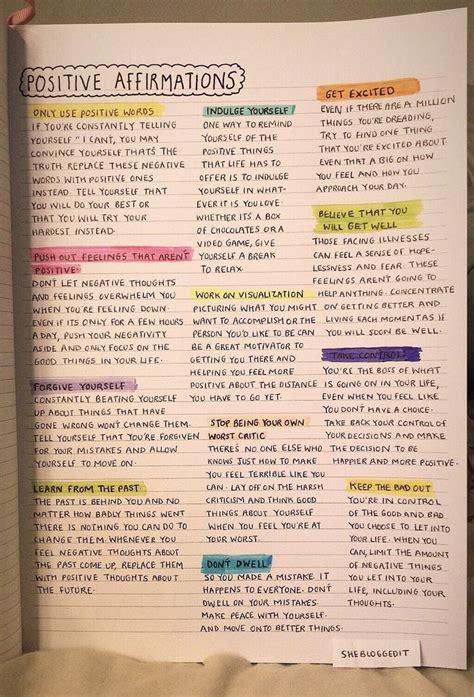 POSITIVE AFFIRMATIONS
ONLY USE POSITIVE WORDS
IF YOU'RE CONSTANTLY TELLING
YOURSELF "I CAN'T, YOU MAY
CONVINCE YOURSELF THAT'S THE
TRUTH. REPLACE THESE NEGATIVE
WORDS WITH POSITIVE ONES
INSTEAD. TELL YOURSELF THAT
YOU WILL DO YOUR BEST OR
THAT YOU WILL TRY YOUR
HARDEST INSTEAD.
PUSH OUT FEELINGS THAT AREN'T
POSITIVE.
DON'T LET NEGATIVE THOUGHTS
AND FEELINGS OVERWHELM YOU
WHEN YOU'RE FEELING DOWN.
EVEN IF ITS ONLY FOR A FEW HOURS
A DAY, PUSH YOUR NEGATIVITY
ASIDE AND ONLY FOCUS ON THE
GOOD THINGS IN YOUR LIFE.
FORGIVE YOURSELF
CONSTANTLY BEATING YOURSELF
UP ABOUT THINGS THAT HAVE
GONE WRONG WON'T CHANGE THEM.
TELL YOURSELF THAT YOU'RE FORGIVEN
FOR YOUR MISTAKES AND ALLOW
YOURSELF TO MOVE ON.
LEARN FROM THE PAST
THE PAST IS BEHIND YOU AND NO
MATTER HOW BADLY THINGS WENT
THERE IS NOTHING YOU CAN DO TO
CHANGE THEM. WHENEVER YOU
FEEL NEGATIVE THOUGHTS ABOUT
THE PAST COME UP, REPLACE THEM
WITH POSITIVE THOUGHTS ABOUT
THE FUTURE.
INDULGE YOURSELF
ONE WAY TO REMIND
YOURSELF OF THE
POSITIVE THINGS
THAT LIFE HAS TO
OFFER IS TO INDULGE
YOURSELF IN WHAT-
EVER IT IS YOU LOVE.
WHETHER ITS A BOX
OF CHOCOLATES OR A
VIDEO GAME, GIVE
YOURSELF A BREAK
TO RELAX.
WORK ON VISUALIZATION
PICTURING WHAT YOU MIGHT
WANT TO ACCOMPLISH OR THE
PERSON YOU'D LIKE TO BE CAN
BE A GREAT MOTIVATOR TO
GETTING YOU THERE AND
HELPING YOU FEEL MORE
POSITIVE ABOUT THE DISTANCE
YOU HAVE TO GO YET.
STOP BEING YOUR OWN
WORST CRITIC
THERE'S NO ONE ELSE WHO
KNOWS JUST HOW TO MAKE
YOU FEEL TERRIBLE LIKE YOU
CAN. LAY OFF ON THE HARSH
CRITICISM AND THINK GOOD
THINGS ABOUT YOURSELF
WHEN YOU FEEL YOU'RE AT
YOUR WORST.
DON'T DWELL
SO YOU MADE A MISTAKE. IT
HAPPENS TO EVERYONE. DON'T
DWELL ON YOUR MISTAKES.
MAKE PEACE WITH YOURSELF.
AND MOVE ONTO BETTER THINGS.
GET EXCITED
EVEN IF THERE ARE A MILLION
THINGS YOU'RE DREADING,
TRY TO FIND ONE THING
THAT YOU'RE EXCITED ABOUT
EVEN THAT A BIG ON HOW
YOU FEEL AND HOW YOU
APPROACH YOUR DAY.
BELIEVE THAT YOU
WILL GET WELL
THOSE FACING ILLNESSES
CAN FEEL A SENSE OF HOPE-
LESSNESS AND FEAR. THESE
FEELINGS AREN'T GOING TO
HELP ANYTHING. CONCENTRATE
ON GETTING BETTER AND
LIVING EACH MOMENT AS IF
YOU WILL SOON BE WELL.
TAKE CONTROL
YOU'RE THE BOSS OF WHAT
IS GOING ON IN YOUR LIFE,
EVEN WHEN YOU FEEL LIKE
YOU DON'T HAVE A CHOICE.
TAKE BACK YOUR CONTROL OF
YOUR DECISIONS AND MAKE
THE DECISION TO BE
HAPPIER AND MORE POSITIVE.
KEEP THE BAD OUT
YOU'RE IN CONTROL
OF THE GOOD AND BAD
YOU CHOOSE TO LET INTO
YOUR LIFE. WHEN YOU
CAN, LIMIT THE AMOUNT
OF NEGATIVE THINGS
YOU LET INTO YOUR
LIFE, INCLUDING YOUR
THOUGHTS.
SHEBLOGGEDIT